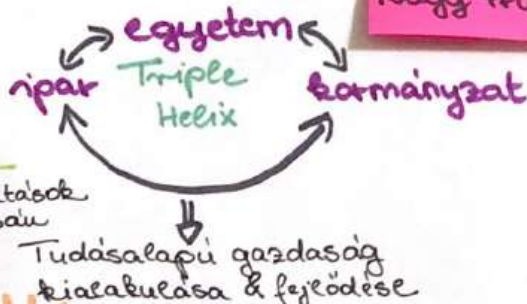 egyetem
ipar
Triple
Helix
kormányzat
Tudásalapú gazdaság
kialakulása & fejlődése